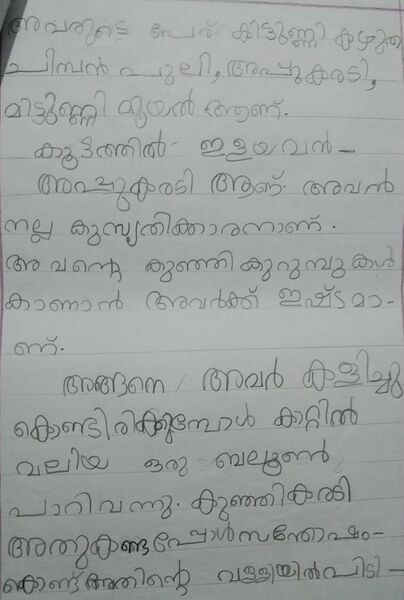 അവരുടെ പേര് കിട്ടുണ്ണി കഴുത
ചിമ്പൻ പുലി, അപ്പുകരടി,
മിട്ടുണ്ണി മുയൽ ആണ്.
കൂട്ടത്തിൽ ഇളയവൻ -
അപ്പുകരടി ആണ്. അവൻ
നല്ല കുസൃതിക്കാരനാണ്.
അവന്റെ കുഞ്ഞി കുറുമ്പുകൾ
കാണാൻ അവർക്ക് ഇഷ്ടമാ-
ണ്.
അങ്ങനെ / അവർ കളിച്ചു
കൊണ്ടിരിക്കുമ്പോൾ കാറ്റിൽ
വലിയ ഒരു ബലൂൺ
പാറിവന്നു. കുഞ്ഞികരടി
അതുകണ്ടപ്പോൾ സന്തോഷം-
കൊണ്ട് അതിന്റെ വള്ളിയിൽ പിടി -